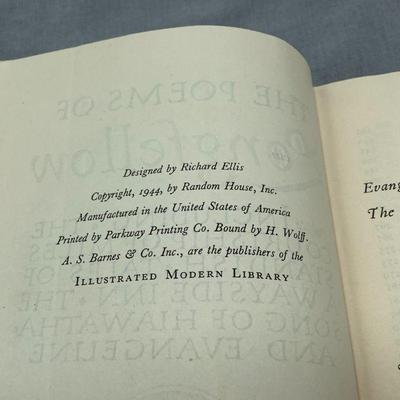 Designed by Richard Ellis
Copyright, 1944, by Random House, Inc.
Manufactured in the United States of America
Printed by Parkway Printing Co. Bound by H. Wolff.
A. S. Barnes & Co. Inc., are the publishers of the
ILLUSTRATED MODERN LIBRARY
THE POEMS OF
Longfellow
SONG OF HIAWATHA
AND EVANGELINE
Evang
The